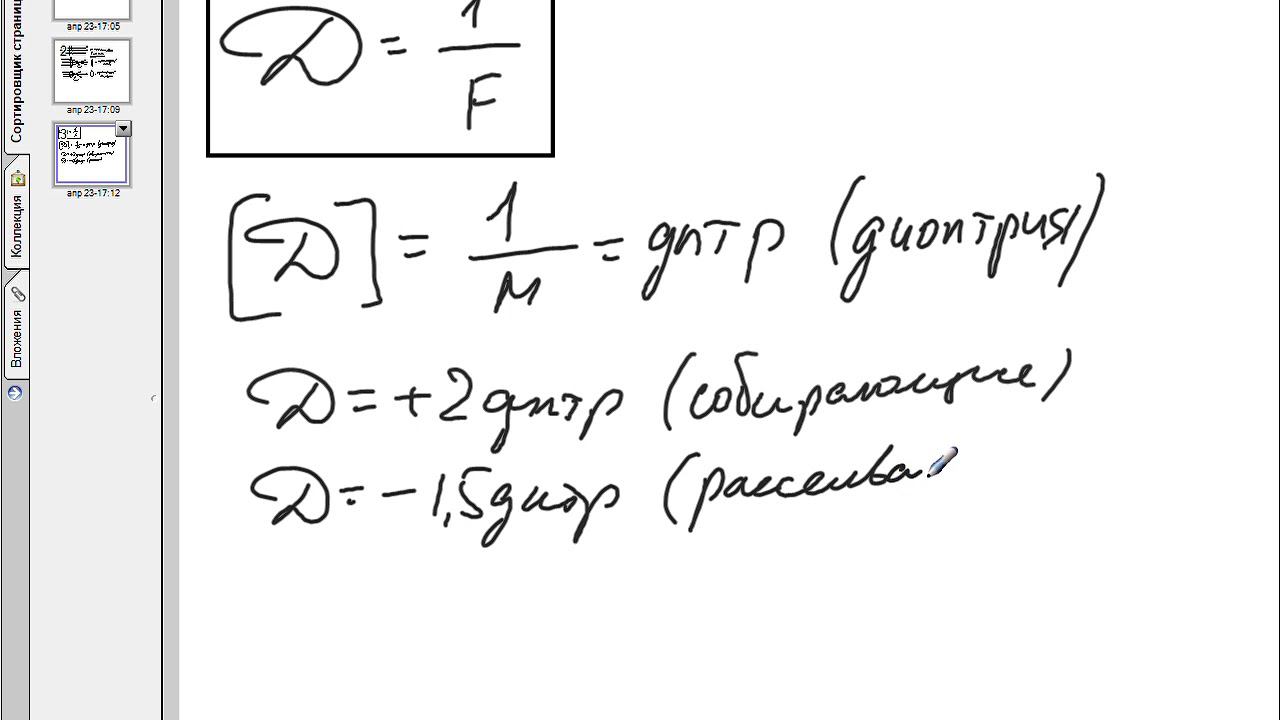 Сортировщик страниц
Коллекция
Вложения
апр 23-17:05
апр 23-17:09
апр 23-17:12
D = 1/F
[D] = 1/м = дптр (диоптрия)
D = +2 дптр (собирающие)
D = -1,5 дптр (рассеива